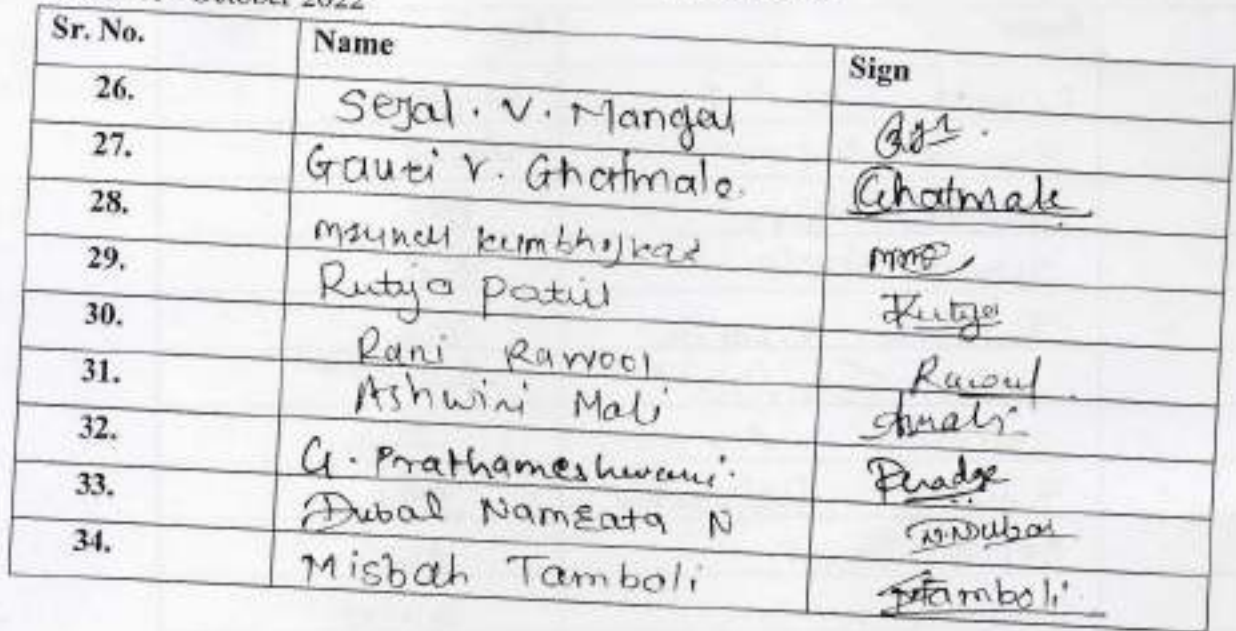 October 2022
Sr. No. Name Sign
26. Sejal . V. Mangal
27. Gauri V. Ghatmale. Ghatmale
28. Mrunali Kumbhojkar
29. Rutuja Patil Rutuja
30. Rani Rawool Rawool
31. Ashwini Mali Amali
32. G. Prathameshwari.
33. Dubal Namrata N N.N.Dubal
34. Misbah Tamboli Tamboli